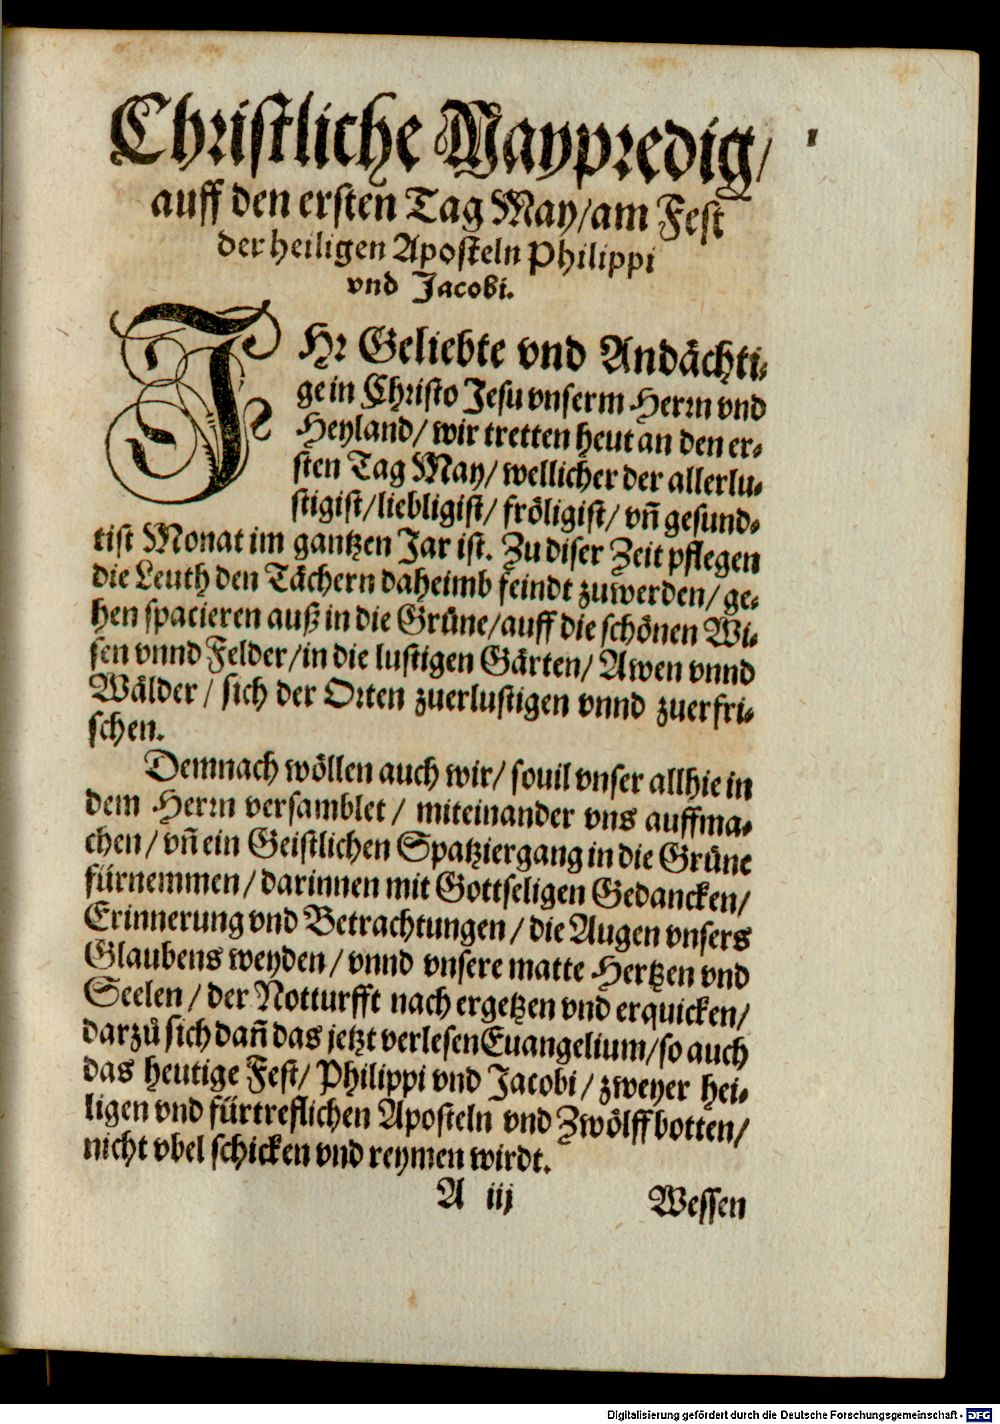 Christliche Maypredig/
auff den ersten Tag May/am Fest
der heiligen Aposteln Philippi
vnd Jacobi.
IHr Geliebte vnd Andächti⸗
ge in Christo Jesu vnserm Herrn vnd
Heyland/ wir tretten heut an den er⸗
sten Tag May/ wellicher der allerlu⸗
stigist/liebligist/ fröligist/ vñ gesund⸗
tist Monat im gantzen Jar ist. Zu diser Zeit pflegen
die Leuth den Tächern daheimb feindt zuwerden/ ge⸗
hen spacieren auß in die Grüne/auff die schönen Wi⸗
sen vnnd Felder/in die lustigen Gärten/ Awen vnnd
Wälder/ sich der Orten zuerlustigen vnnd zuerfri⸗
schen.
Demnach wöllen auch wir/ souil vnser allhie in
dem Herrn versamblet/ miteinander vns auffma⸗
chen/ vñ ein Geistlichen Spatziergang in die Grüne
fürnemmen/ darinnen mit Gottseligen Gedancken/
Erinnerung vnd Betrachtungen/ die Augen vnsers
Glaubens weyden/ vnnd vnsere matte Hertzen vnd
Seelen/ der Notturfft nach ergetzen vnd erquicken/
darzů sich dañ das jetzt verlesen Euangelium/so auch
das heutige Fest/ Philippi vnd Jacobi/ zweyer hei⸗
ligen vnd fürtreflichen Aposteln vnd Zwölffbotten/
nicht vbel schicken vnd reymen wirdt.
A iij Wessen
Digitalisierung gefördert durch die Deutsche Forschungsgemeinschaft - DFG